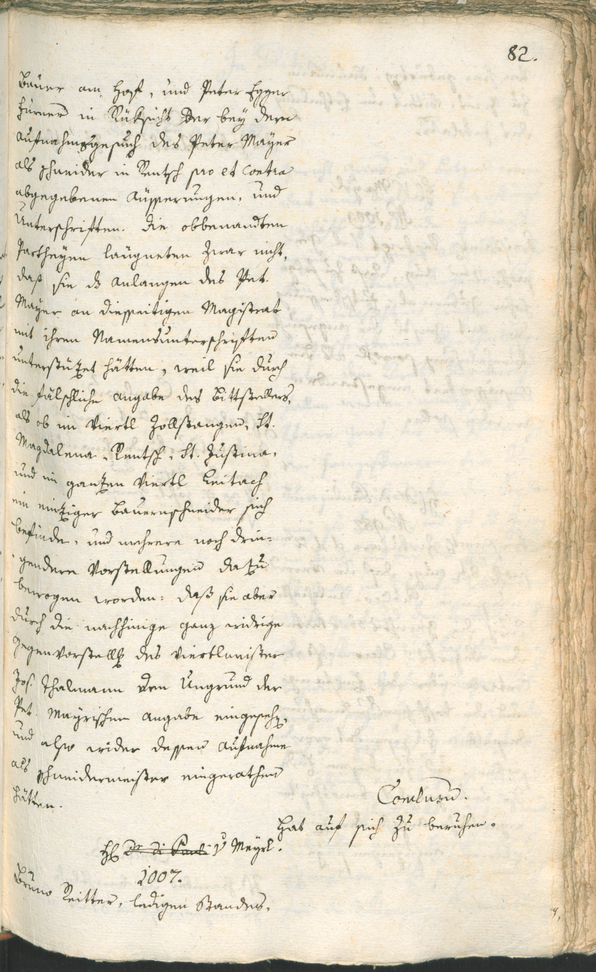 82.
Bauer am Hof, und Peter Egger
Hurner in Rüksicht der bey dem
Aufnahmsgesuch des Peter Mayer
als Schneider in Rentsch pro et contra
abgegebenen Äusserungen, und
Unterschriften. Die obbenandten
Partheyen läugneten zwar nicht,
daß sie das Anlangen des Pet.
Mayer an diesseitigen Magistrat
mit ihren Namensunterschriften
unterstützet hätten, weil sie durch
die fälschliche Angabe des Bittstellers,
als ob im Viertl Zollstangen, St.
Magdalena, Rentsch, St. Justina,
und im ganzen Viertl Leitach
ein einziger Bauernschneider sich
befinde, und mehrere noch drin-
gendere Vorstellungen dazu
bewogen worden: daß sie aber
durch die nachhinige ganz widrige
Gegenvorstellg des Viertlmeister
Jos. Thalmann den Ungrund der
Pet. Mayrischen Angabe eingesehen,
und also wider dessen Aufnahme
als Schneidermeister eingerathen
hätten.
Conclusum.
Hat auf sich zu beruhen.
H Dr. di Pauli v Mayrl.
1007.
Bruno Reitter, ledigen Standes,